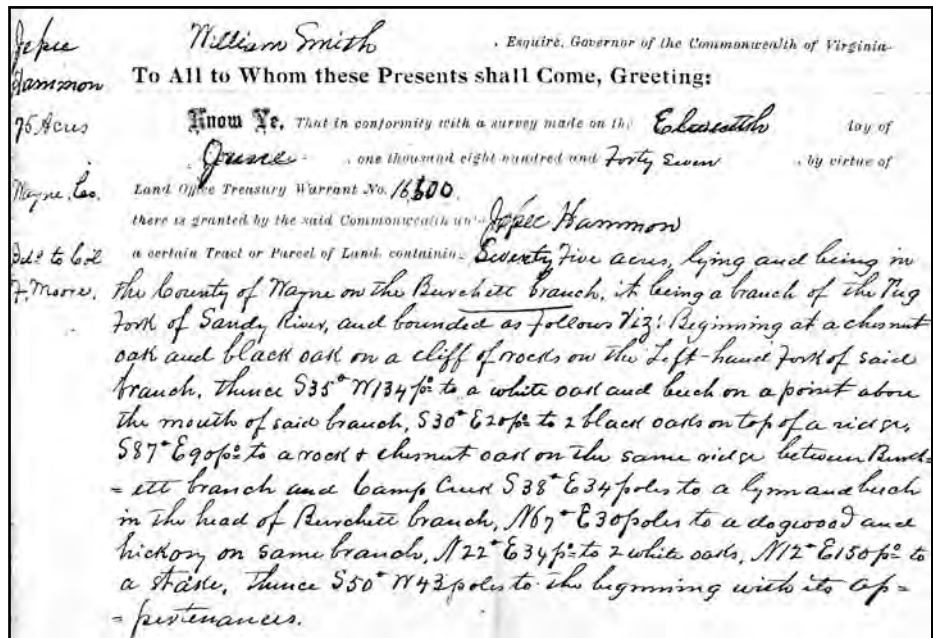 Jessee
Hammon
75 Acres
Wayne Co.
Del'd to Col
F. Moore.
William Smith , Esquire, Governor of the Commonwealth of Virginia
To All to Whom these Presents shall Come, Greeting:
Know Ye, That in conformity with a survey made on the Eleventh day of
June , one thousand eight hundred and Forty Seven , by virtue of
Land Office Treasury Warrant No. 16600
there is granted by the said Commonwealth unto Jessee Hammon
a certain Tract or Parcel of Land, containing Seventy Five acres, lying and being in
the County of Wayne on the Burchett branch, it being a branch of the Tug
Fork of Sandy River, and bounded as follows Viz: Beginning at a chesnut
oak and black oak on a cliff of rocks on the Left-hand Fork of said
branch, thence S35° W134 po to a white oak and beech on a point above
the mouth of said branch, S30° E20 po to 2 black oaks on top of a ridge,
S87° E90 po to a rock & chesnut oak on the same ridge between Burch=
=ett branch and Camp Creek S38° E34 poles to a lynn and beech
in the head of Burchett branch, N67° E30 poles to a dogwood and
hickory on same branch, N22° E34 po to 2 white oaks, N12° E150 po to
a stake, thence S50° W43 poles to the beginning with its ap=
=purtenances.